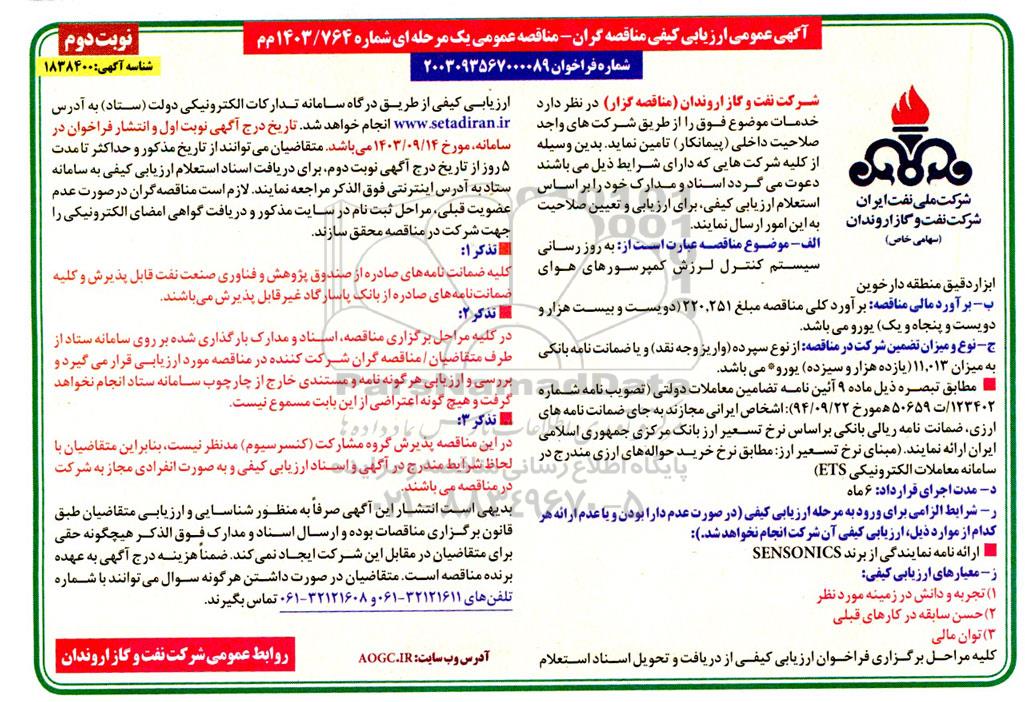 آگهی عمومی ارزیابی کیفی مناقصه گران – مناقصه عمومی یک مرحله ای شماره ۱۴۰۳/۷۶۴ م م
نوبت دوم
شماره فراخوان ۲۰۰۳۰۹۳۵۶۷۰۰۰۰۸۹
شناسه آگهی: ۱۸۳۸۴۰۰
شرکت ملی نفت ایران
شرکت نفت و گاز اروندان
(سهامی خاص)
شرکت نفت و گاز اروندان (مناقصه گزار) در نظر دارد
خدمات موضوع فوق را از طریق شرکت های واجد
صلاحیت داخلی (پیمانکار) تامین نماید. بدین وسیله
از کلیه شرکت هایی که دارای شرایط ذیل می باشند
دعوت می گردد اسناد و مدارک خود را بر اساس
استعلام ارزیابی کیفی، برای ارزیابی و تعیین صلاحیت
به این امور ارسال نمایند.
الف – موضوع مناقصه عبارت است از: به روز رسانی
سیستم کنترل لرزش کمپرسورهای هوای
ابزار دقیق منطقه دارخوین
ب – برآورد مالی مناقصه: برآورد کلی مناقصه مبلغ ۲۲۰,۲۵۱ (دویست و بیست هزار و
دویست و پنجاه و یک) یورو می باشد.
ج – نوع و میزان تضمین شرکت در مناقصه: از نوع سپرده (واریز وجه نقد) و یا ضمانت نامه بانکی
به میزان ۱۱,۰۱۳ (یازده هزار و سیزده) یورو* می باشد.
■ مطابق تبصره ذیل ماده ۹ آئین نامه تضامین معاملات دولتی (تصویب نامه شماره
۱۲۳۴۰۲/ت ۵۰۶۵۹ ه مورخ ۹۴/۰۹/۲۲): اشخاص ایرانی مجازند به جای ضمانت نامه های
ارزی، ضمانت نامه ریالی بانکی بر اساس نرخ تسعیر ارز بانک مرکزی جمهوری اسلامی
ایران ارائه نمایند. (مبنای نرخ تسعیر ارز: مطابق نرخ خرید حواله های ارزی مندرج در
سامانه معاملات الکترونیکی ETS)
د – مدت اجرای قرارداد: ۶ ماه
ر – شرایط الزامی برای ورود به مرحله ارزیابی کیفی (در صورت عدم دارا بودن و یا عدم ارائه هر
کدام از موارد ذیل، ارزیابی کیفی آن شرکت انجام نخواهد شد.):
■ ارائه نامه نمایندگی از برند SENSONICS
ز – معیارهای ارزیابی کیفی:
۱) تجربه و دانش در زمینه مورد نظر
۲) حسن سابقه در کارهای قبلی
۳) توان مالی
کلیه مراحل برگزاری فراخوان ارزیابی کیفی از دریافت و تحویل اسناد استعلام
ارزیابی کیفی از طریق درگاه سامانه تدارکات الکترونیکی دولت (ستاد) به آدرس
www.setadiran.ir انجام خواهد شد. تاریخ درج آگهی نوبت اول و انتشار فراخوان در
سامانه، مورخ ۱۴۰۳/۰۹/۱۴ می باشد. متقاضیان می توانند از تاریخ مذکور و حداکثر تا مدت
۵ روز از تاریخ درج آگهی نوبت دوم، برای دریافت اسناد استعلام ارزیابی کیفی به سامانه
ستاد به آدرس اینترنتی فوق الذکر مراجعه نمایند. لازم است مناقصه گران در صورت عدم
عضویت قبلی، مراحل ثبت نام در سایت مذکور و دریافت گواهی امضای الکترونیکی را
جهت شرکت در مناقصه محقق سازند.
■ تذکر ۱:
کلیه ضمانت نامه های صادره از صندوق پژوهش و فناوری صنعت نفت قابل پذیرش و کلیه
ضمانت نامه های صادره از بانک پاسارگاد غیر قابل پذیرش می باشند.
■ تذکر ۲:
در کلیه مراحل برگزاری مناقصه، اسناد و مدارک بارگذاری شده بر روی سامانه ستاد از
طرف متقاضیان / مناقصه گران شرکت کننده در مناقصه مورد ارزیابی قرار می گیرد و
بررسی و ارزیابی هر گونه نامه و مستندی خارج از چارچوب سامانه ستاد انجام نخواهد
گرفت و هیچ گونه اعتراضی از این بابت مسموع نیست.
■ تذکر ۳:
در این مناقصه پذیرش گروه مشارکت (کنسرسیوم) مدنظر نیست، بنابراین متقاضیان با
لحاظ شرایط مندرج در آگهی و اسناد ارزیابی کیفی و به صورت انفرادی مجاز به شرکت
در مناقصه می باشند.
بدیهی است انتشار این آگهی صرفاً به منظور شناسایی و ارزیابی متقاضیان طبق
قانون برگزاری مناقصات بوده و ارسال اسناد و مدارک فوق الذکر هیچگونه حقی
برای متقاضیان در مقابل این شرکت ایجاد نمی کند. ضمناً هزینه درج آگهی به عهده
برنده مناقصه است. متقاضیان در صورت داشتن هر گونه سوال می توانند با شماره
تلفن های ۳۲۱۲۱۶۱۱-۰۶۱ و ۳۲۱۲۱۶۰۸-۰۶۱ تماس بگیرند.
آدرس وب سایت: AOGC.IR
روابط عمومی شرکت نفت و گاز اروندان
ParsNamadData
پایگاه اطلاع رسانی مناقصه و مزایده
۰۲۱-۸۸۳۴۹۶۷۰-۵